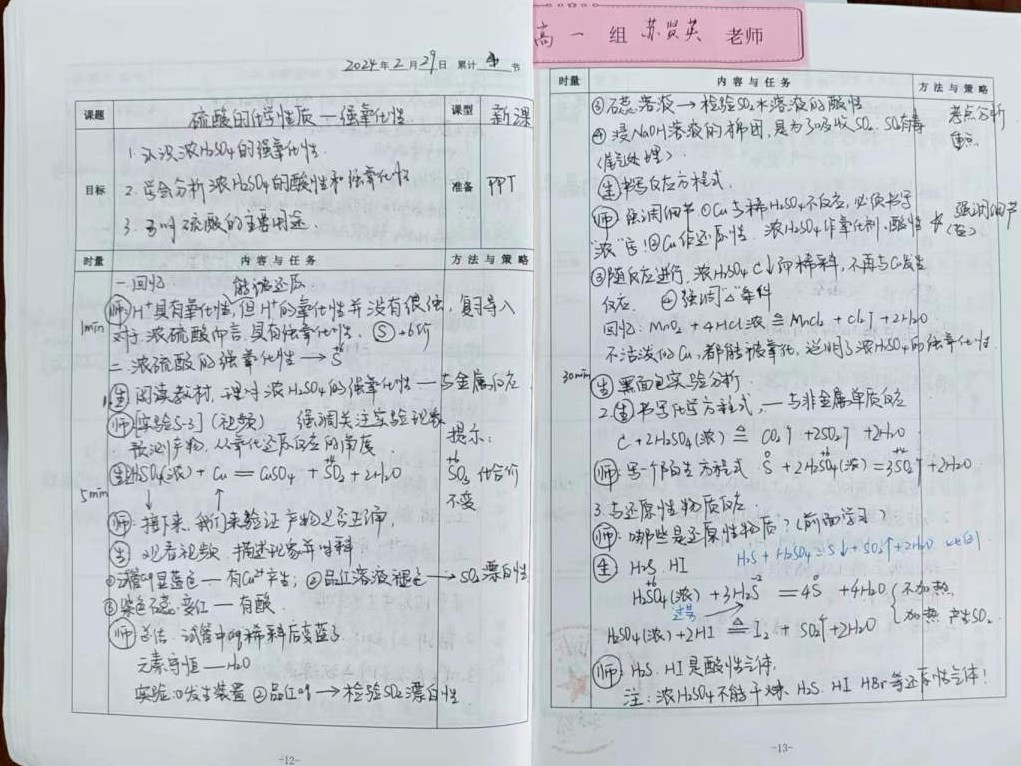 2024年2月29日 累计 4 节
课题 硫酸的化学性质—强氧化性 课型 新课
1. 认识浓H₂SO₄的强氧化性.
目标 2. 学会分析浓H₂SO₄的酸性和强氧化性 准备 PPT
3. 硫酸的主要用途.
时量 内容与任务 方法与策略
一.回忆 能被还原
师:H⁺具有氧化性,但H⁺的氧化性并没有很强, 复习导入
1min 对于浓硫酸而言,具有强氧化性. Ⓢ+6价
二.浓硫酸的强氧化性 → S⁺⁶
生 阅读教材,理解浓H₂SO₄的强氧化性—与金属反应
师 [实验5-3] (视频) 强调关注实验现象
预测产物. 从氧化还原反应的角度 提示:
生 H₂SO₄(浓) + Cu = CuSO₄ + SO₂ + 2H₂O SO₃ 化合价
5min 不变
师: 接下来,我们来验证产物是否正确,
生 观看视频,描述现象并解释.
①试管中显蓝色—有Cu²⁺产生; ②品红溶液褪色→SO₂漂白性
③紫色石蕊变红—有酸.
师 总结: 试管中的稀释后变蓝了
元素守恒—H₂O
实验:①发生装置 ②品红→检验SO₂漂白性
-12-
高一 组 苏贤英 老师
时量 内容与任务 方法与策略
③石蕊溶液→检验SO₂水溶液的酸性 考点分析
④浸NaOH溶液的棉团,是为了吸收SO₂. SO₂有毒 重点.
(尾气处理).
生 书写反应方程式.
师 强调细节 ①Cu与稀H₂SO₄不反应,必须书写 强调细节
"浓"字!②Cu作还原性. 浓H₂SO₄作氧化剂,酸性
③随反应进行,浓H₂SO₄ C↓即稀释,不再与Cu发生
反应. ④强调"△"条件
回忆: MnO₂ + 4HCl浓 ≜ MnCl₂ + Cl₂↑ + 2H₂O
不活泼的Cu,都能被氧化,说明了浓H₂SO₄的强氧化性.
30min 生 黑面包实验分析.
2. 生 书写化学方程式,—与非金属单质反应
C + 2H₂SO₄(浓) ≜ CO₂↑ + 2SO₂↑ + 2H₂O
师: 写一个陌生方程式 S + 2H₂SO₄(浓) = 3SO₂↑ + 2H₂O
3. 与还原性物质反应
师: 哪些是还原性物质?(前面学习)
生 H₂S. HI H₂S + H₂SO₄ = S↓ + SO₂↑ + 2H₂O
H₂SO₄(浓) + 3H₂S = 4S + 4H₂O 不加热
过量 加热 产生SO₂.
H₂SO₄(浓) + 2HI ≜ I₂ + SO₂↑ + 2H₂O
师: H₂S. HI是酸性气体.
注: 浓H₂SO₄不能干燥 H₂S. HI HBr等还原性气体!
-13-